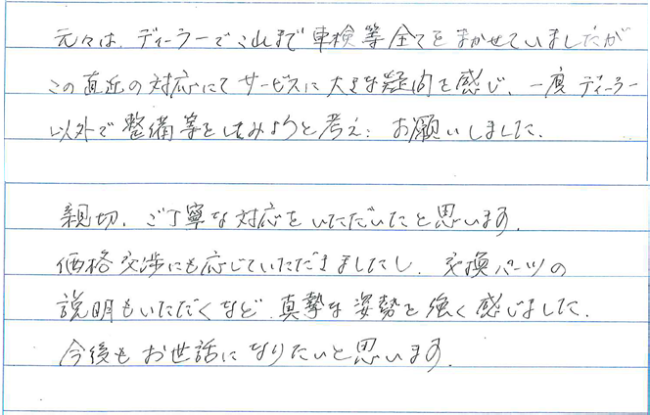 元々は、ディーラーでこれまで車検等全てをまかせていましたが
この直近の対応にてサービスに大きな疑問を感じ、一度ディーラー
以外で整備等をしてみようと考え、お願いしました。
親切、ご丁寧な対応をいただいたと思います。
価格交渉にも応じていただきましたし、交換パーツの
説明もいただくなど、真摯な姿勢を強く感じました。
今後もお世話になりたいと思います。